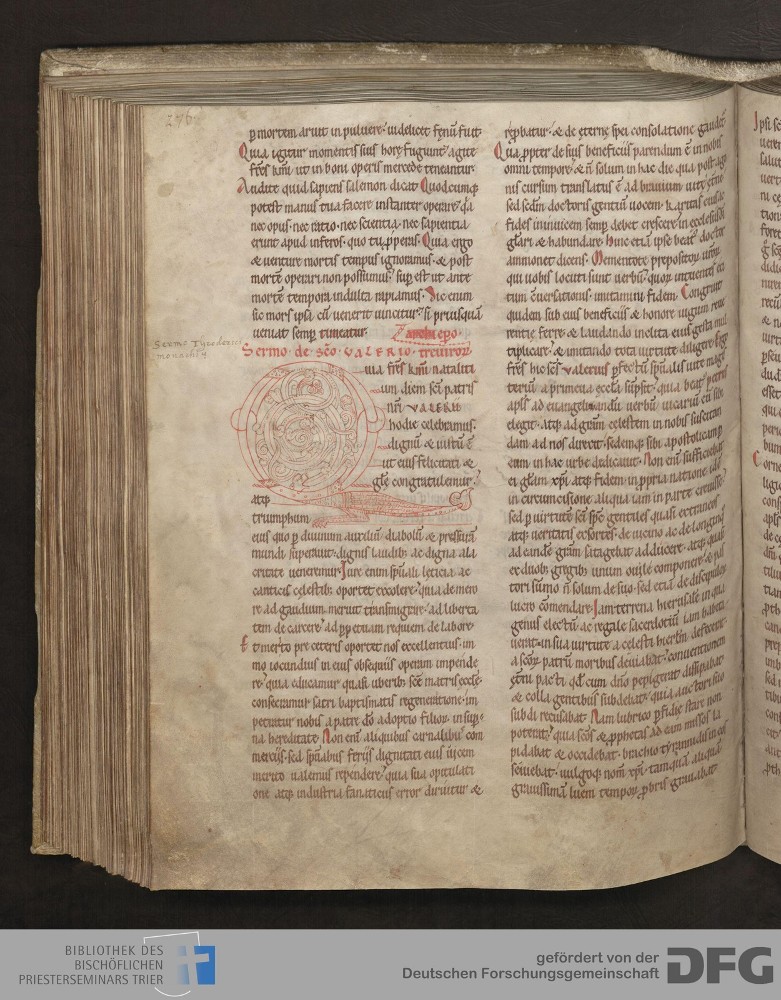 276
p mortem aruit in puluere. uidelicet fęnū fuit.
Quia igitur momentis suis horę fugiunt. agite
frēs kmi. ut in boni operis mercede teneantur.
Audite quid sapiens salemon dicat. Quodcumq;
potest manus tua facere instanter operare. q̄a
nec opus. nec ratio. nec scientia. nec sapientia
erunt apud inferos. quo tu pperas. Quia ergo
& uenturę mortis tempus ignoramus. & post
mortē operari non possumus. supest ut ante
mortē tempora indulta rapiamus. Sic enim
sic mors ipsa cū uenerit uincitur. si priusquā
ueniat semp timeatur.
archiepo.
Sermo de scō VALERIO treuiroꝝ
Sermo Tyoderici
monachi
uia frēs kmi natalita
um diem scī patris
nr̄i VALERII
hodie celebramus.
dignū & iustū ē
ut eius felicitati &
glę congratulemur.
atq;
triumphum
eius quo p diuinum auxiliū. diabolū & pressurā
mundi supauit. dignis laudib; ac digna ala
critate ueneremur. Iure enim spūali lęticia ac
canticis cęlestib; oportet excolere. quia de mero
re ad gaudium meruit transmigrare. ad liberta
tem de carcere. ad ppetuam requiem de labore.
Et merito pre ceteris oportet nos excellentius. im
mo iocundius in eius obsequiis operam impende
re. quia educamur quasi uberib; scē matris ęcclę.
consecramur sacri baptismatis regeneratione. im
petratur nobis a patre dō adoptio filioꝝ. in sup
na hereditate. Non enī aliquibus carnalibus com
merciis. sed spūabus feriis dignitati eius uicem
merito ualemus rependere. quia sua opitulati
one atq; industria fanaticus error diruitur &
& de ęternę spei consolatione gaudet.
Qua ppter de suis beneficiis parendum ē in nobis
omni tempore. & n̄ solum in hac die qua post ago
nis cursum translatus ē ad brauium uitę ętnę.
sed scdm doctoris gentiū uocem. karitas eius ac
fides inuicem semp debet crescere in ecclesiis dī
& habundare. Hinc etiā ipse beat doctor
ammonet dicens. Mementote prepositoꝝ uroꝝ
qui uobis locuti sunt uerbū. quoꝝ intuentes exi
tum cuersationis. imitamini fidem. Congruit
quidem sub eius beneficiis & honore iugum reue
rentię ferre. & laudando inclita eius gesta mul
tiplicare. & imitando tota uirtute diligere. Ergo
frēs hic scs Valerius pfectū spūalis uite magis
terium a primeua eccła supsit. quia beat petrus
apłs ad euangelizandū uerbū uicariū eū sibi
elegit. atq; ad grām cęlestem in nobis suscitan
dam ad nos direxit. sedemq; sibi apostolicam p
eum in hac urbe dedicauit. Non enī sufficiebat
ei głam xpī atq; fidem in ppria natione id
in circumcisione aliqua iam in parte creuisse.
sed p uirtutē scī spc gentiles quasi extraneos
atq; ueritatis exsortes. de uicino ac de longinq
ad eandē grām satagebat adducere. atq; quasi
ex duob; gregib; unum ouile componere. & pas
tori sūmo n̄ solum de suo. sed etiā de discipuloꝝ
lucro cōmendare. Iam terrena hierusalē in qua
genus electū. ac regale sacerdotiū iam habita
uerat. in sua uirtute a celesti hierlm defecerat.
a scōꝝ patrū moribus deuiabat. conuentionem
pacti qd cum dn̄o pepigerat dissipabat
& colla gentibus subdebat. quia auctori suo
subdi recusabat. Nam lubrico pfidię stare non
poterat. quia scōs & pphetas ad eam missos la
pidabat & occidebat. brachio tyrannidis in eos
seuiebat. uulgoq; nom xpī tamquā aliquā
grauissimā luem temporꝝ pbris grauabat
BIBLIOTHEK DES
BISCHÖFLICHEN
PRIESTERSEMINARS TRIER
gefördert von der
Deutschen Forschungsgemeinschaft
DFG